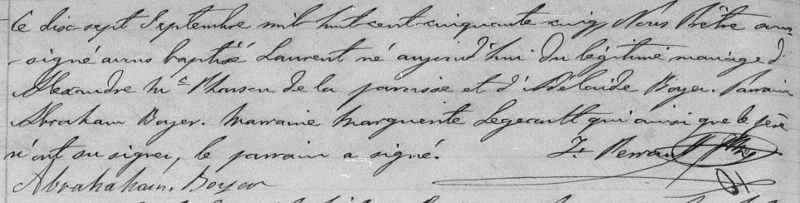 Le disc-sept Septembre mil huit cent-cinquante-cinq, Nous Prêtre sous-
-signé avons baptisé Laurent né aujourd'hui du légitime mariage d'
Alexandre Mc Pherson de la paroisse et d'Adelaide Boyer. Parrain
Abraham Boyer. Marraine Marguerite Legeault qui ainsi que le père
n'ont su signer, le parrain a signé.
Abrahaham. Boyer